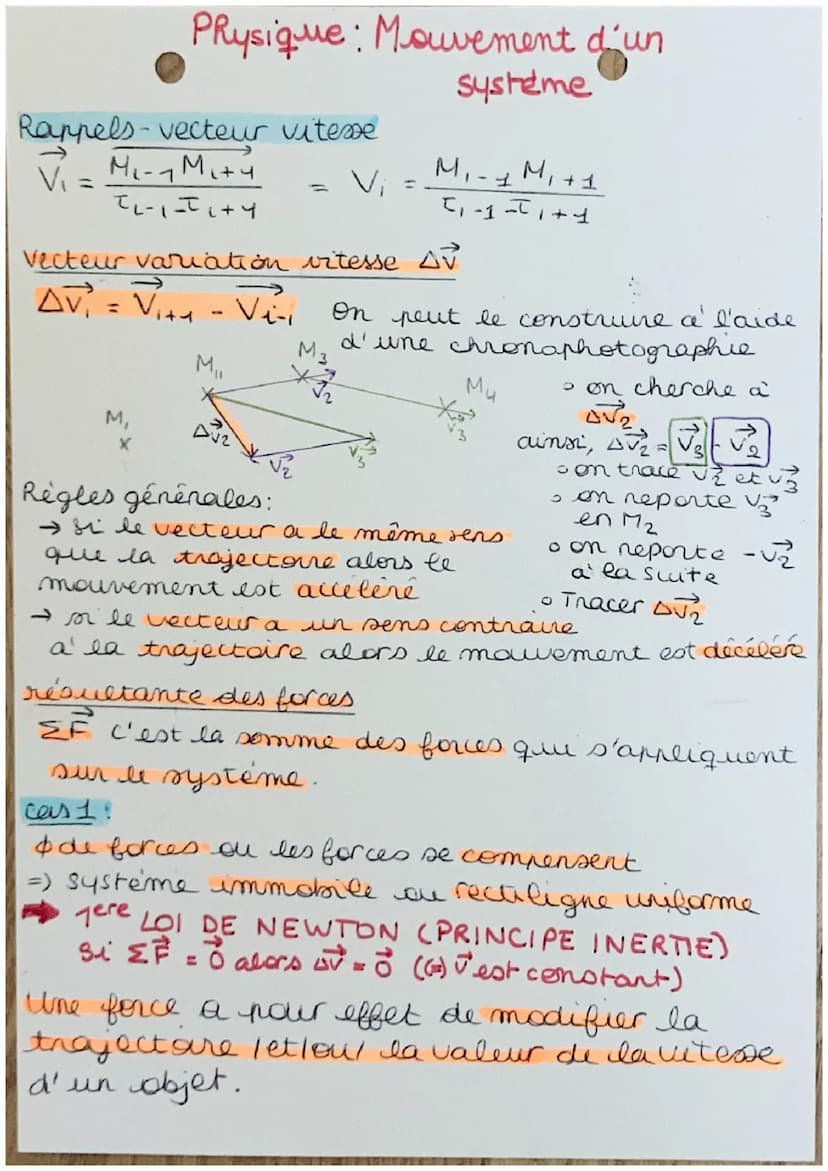 PHysique : Mouvement d'un
système
Rappels - vecteur vitesse
V⃗i = M⃗i-1 Mi+1 / τi-1 - τi+1 = Vi = Mi-1 Mi+1 / τi-1 - τi+1
Vecteur variation vitesse ΔV⃗
ΔV⃗i = V⃗i+1 - V⃗i-1
On peut le construire à l'aide
d'une chronophotographie
M1
M11
M3
M4
V⃗2
V⃗3
ΔV⃗2
V⃗2
V⃗3
° on cherche à
ΔV⃗2
ainsi, ΔV⃗2 = V⃗3 - V⃗2
° on trace V⃗2 et V⃗3
° on reporte V⃗3
en M2
° on reporte -V⃗2
à la suite
° Tracer ΔV⃗2
Règles générales :
→ Si le vecteur a le même sens
que la trajectoire alors le
mouvement est accéléré
→ si le vecteur a un sens contraire
à la trajectoire alors le mouvement est décéléré
résultante des forces
ΣF⃗ c'est la somme des forces qui s'appliquent
sur le système.
cas 1 :
ϕ de forces ou les forces se compensent
=> système immobile ou rectiligne uniforme
➡ 1ere LOI DE NEWTON (PRINCIPE INERTIE)
Si ΣF⃗ = 0⃗ alors ΔV⃗ = 0⃗ (<=> V⃗ est constant)
Une force a pour effet de modifier la
trajectoire /et/ou/ la valeur de la vitesse
d'un objet.